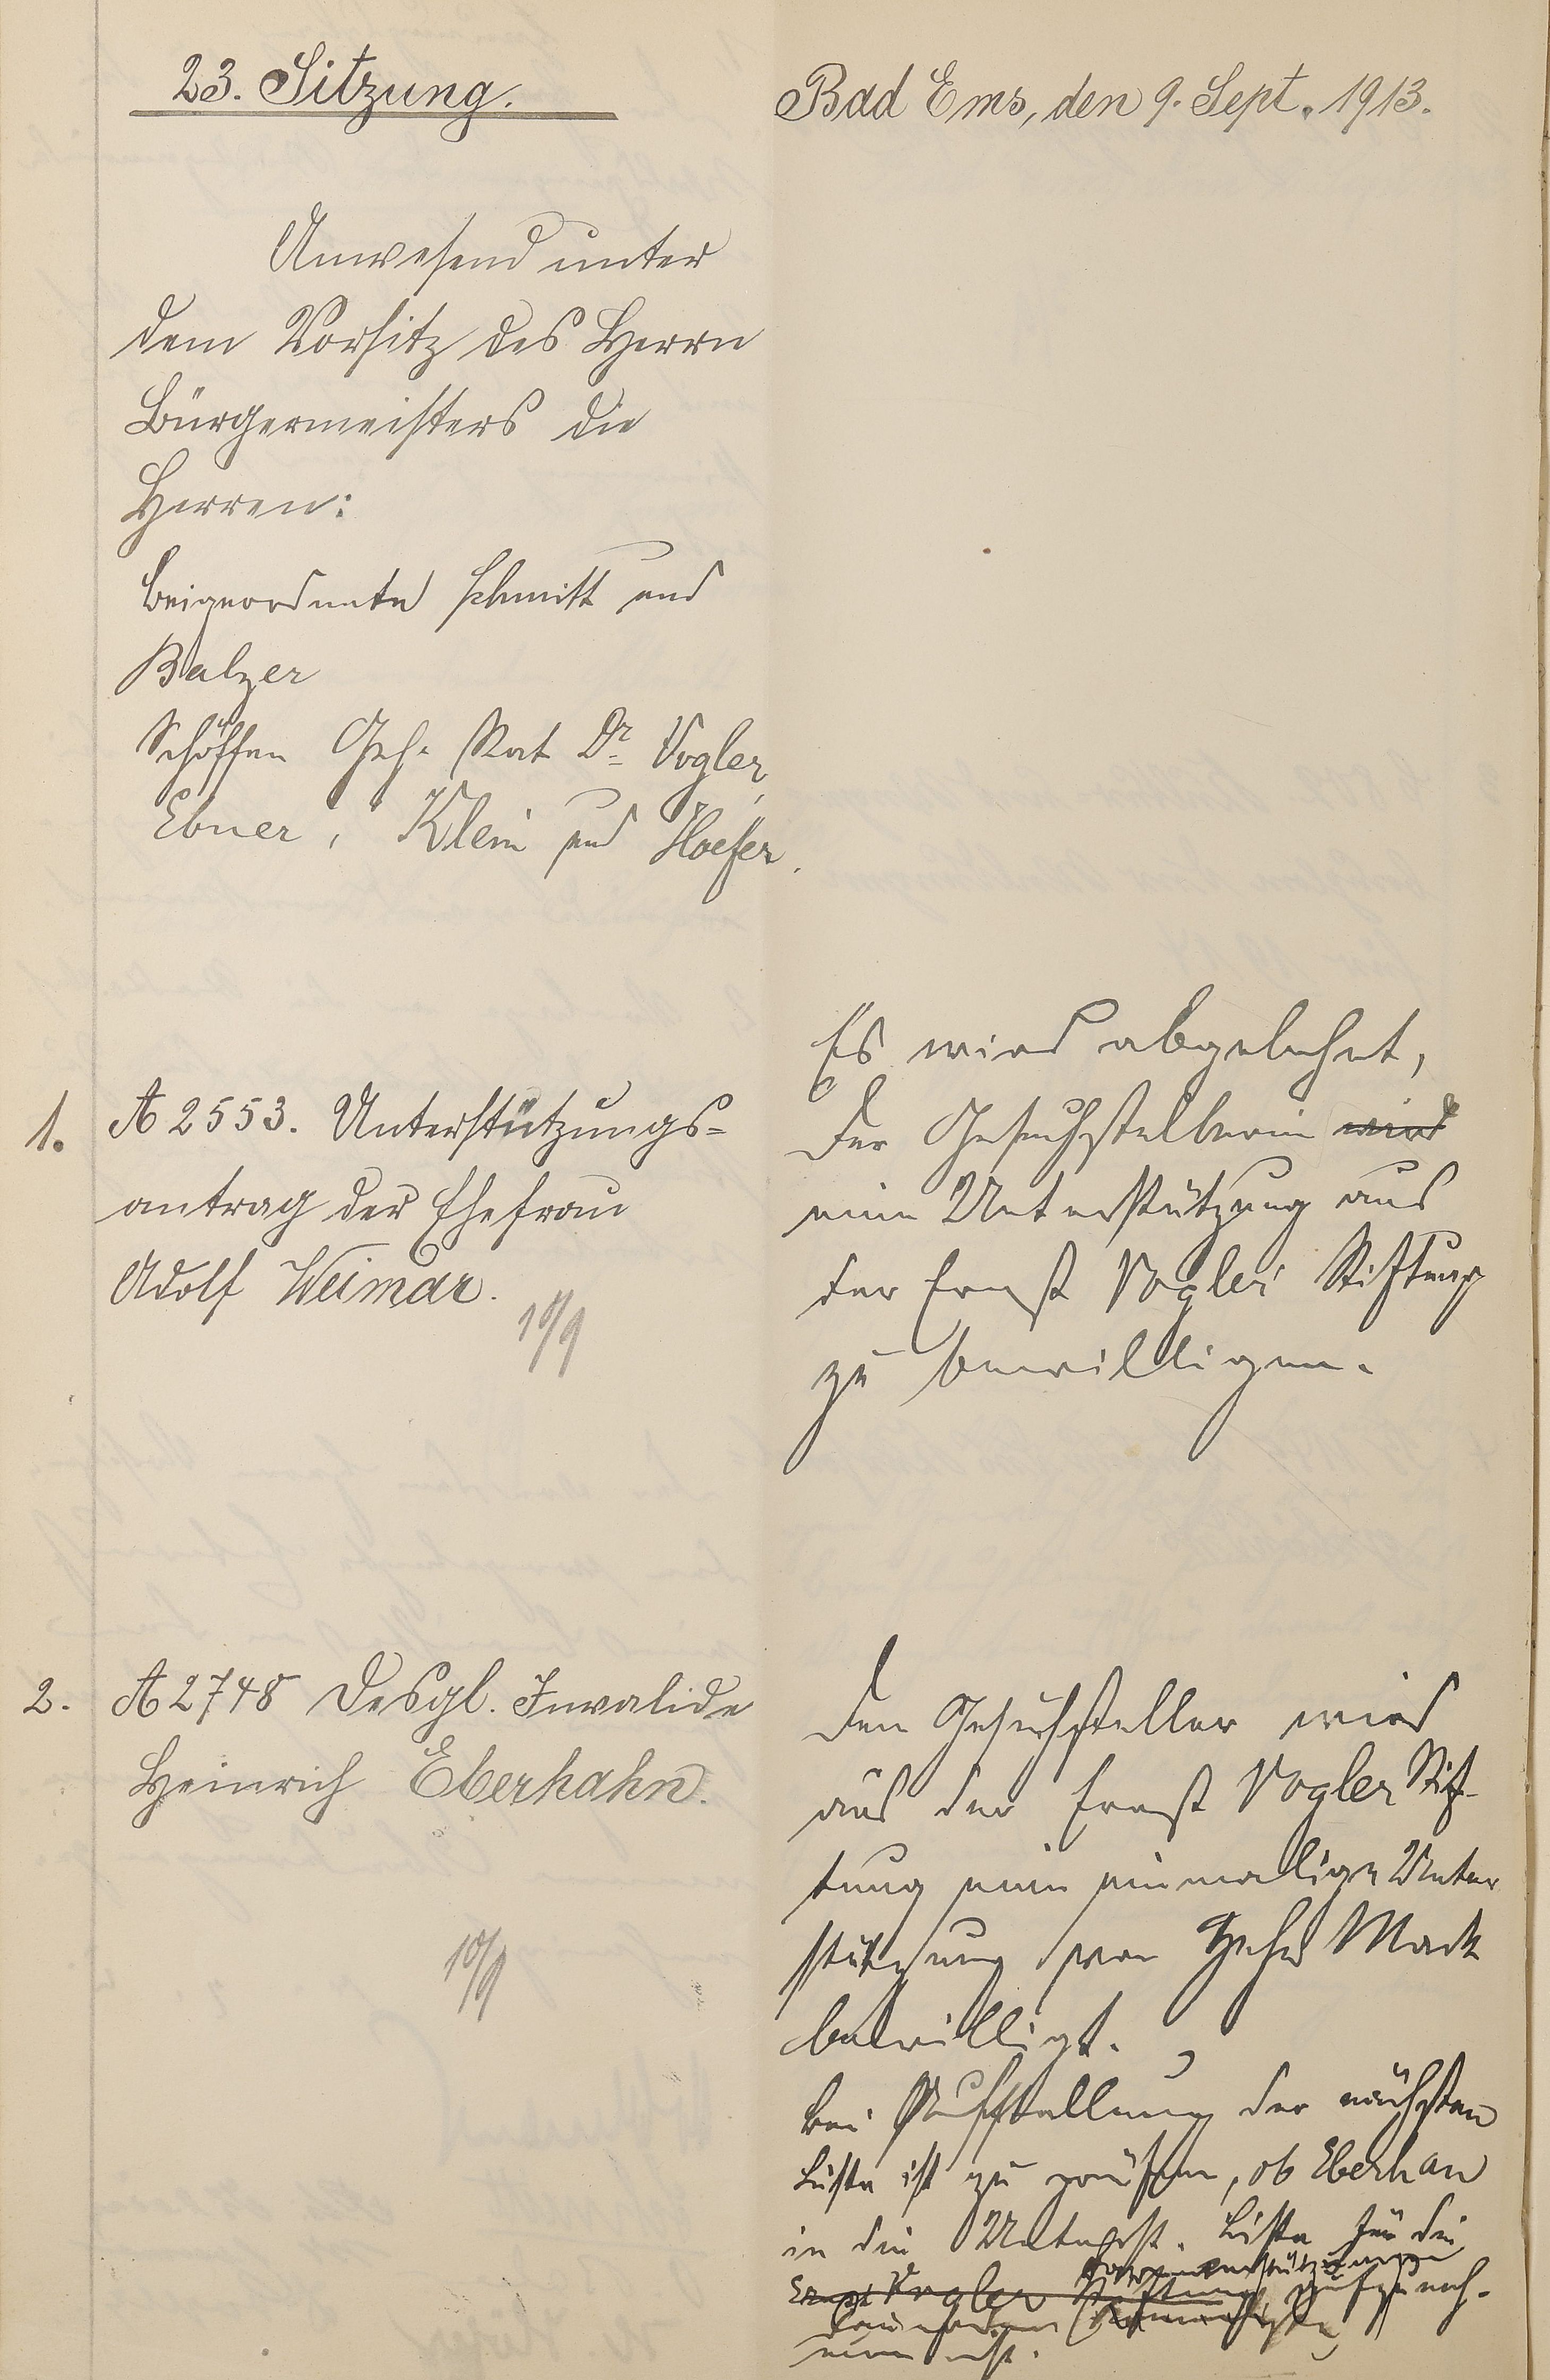 23. Sitzung.
Bad Ems, den 9. Sept. 1913.
Anwesend unter
dem Vorsitz des Herrn
Bürgermeisters die
Herren:
Beigeordnete Schmitt und
Balzer
Schöffen Geh. Rat Dr. Vogler,
Ebner, Klein und Hoefer.
1. A 2553. Unterstützungs-
antrag der Ehefrau
Adolf Weimar.
10/9
Es wird abgelehnt,
der Gesuchstellerin wird
eine Unterstützung aus
der Ernst Vogler Stiftung
zu bewilligen.
2. A 2748 Desgl. Invalide
Heinrich Eberhahn.
10/9
Dem Gesuchsteller wird
aus der Ernst Vogler Stif-
tung eine einmalige Unter
stützung von Zehn Mark
bewilligt.
Bei Aufstellung der nächsten
Liste ist zu prüfen, ob Eberhan
in die Unterst. Liste für die
Ernst Vogler Stiftung aufzuneh-
men ist.